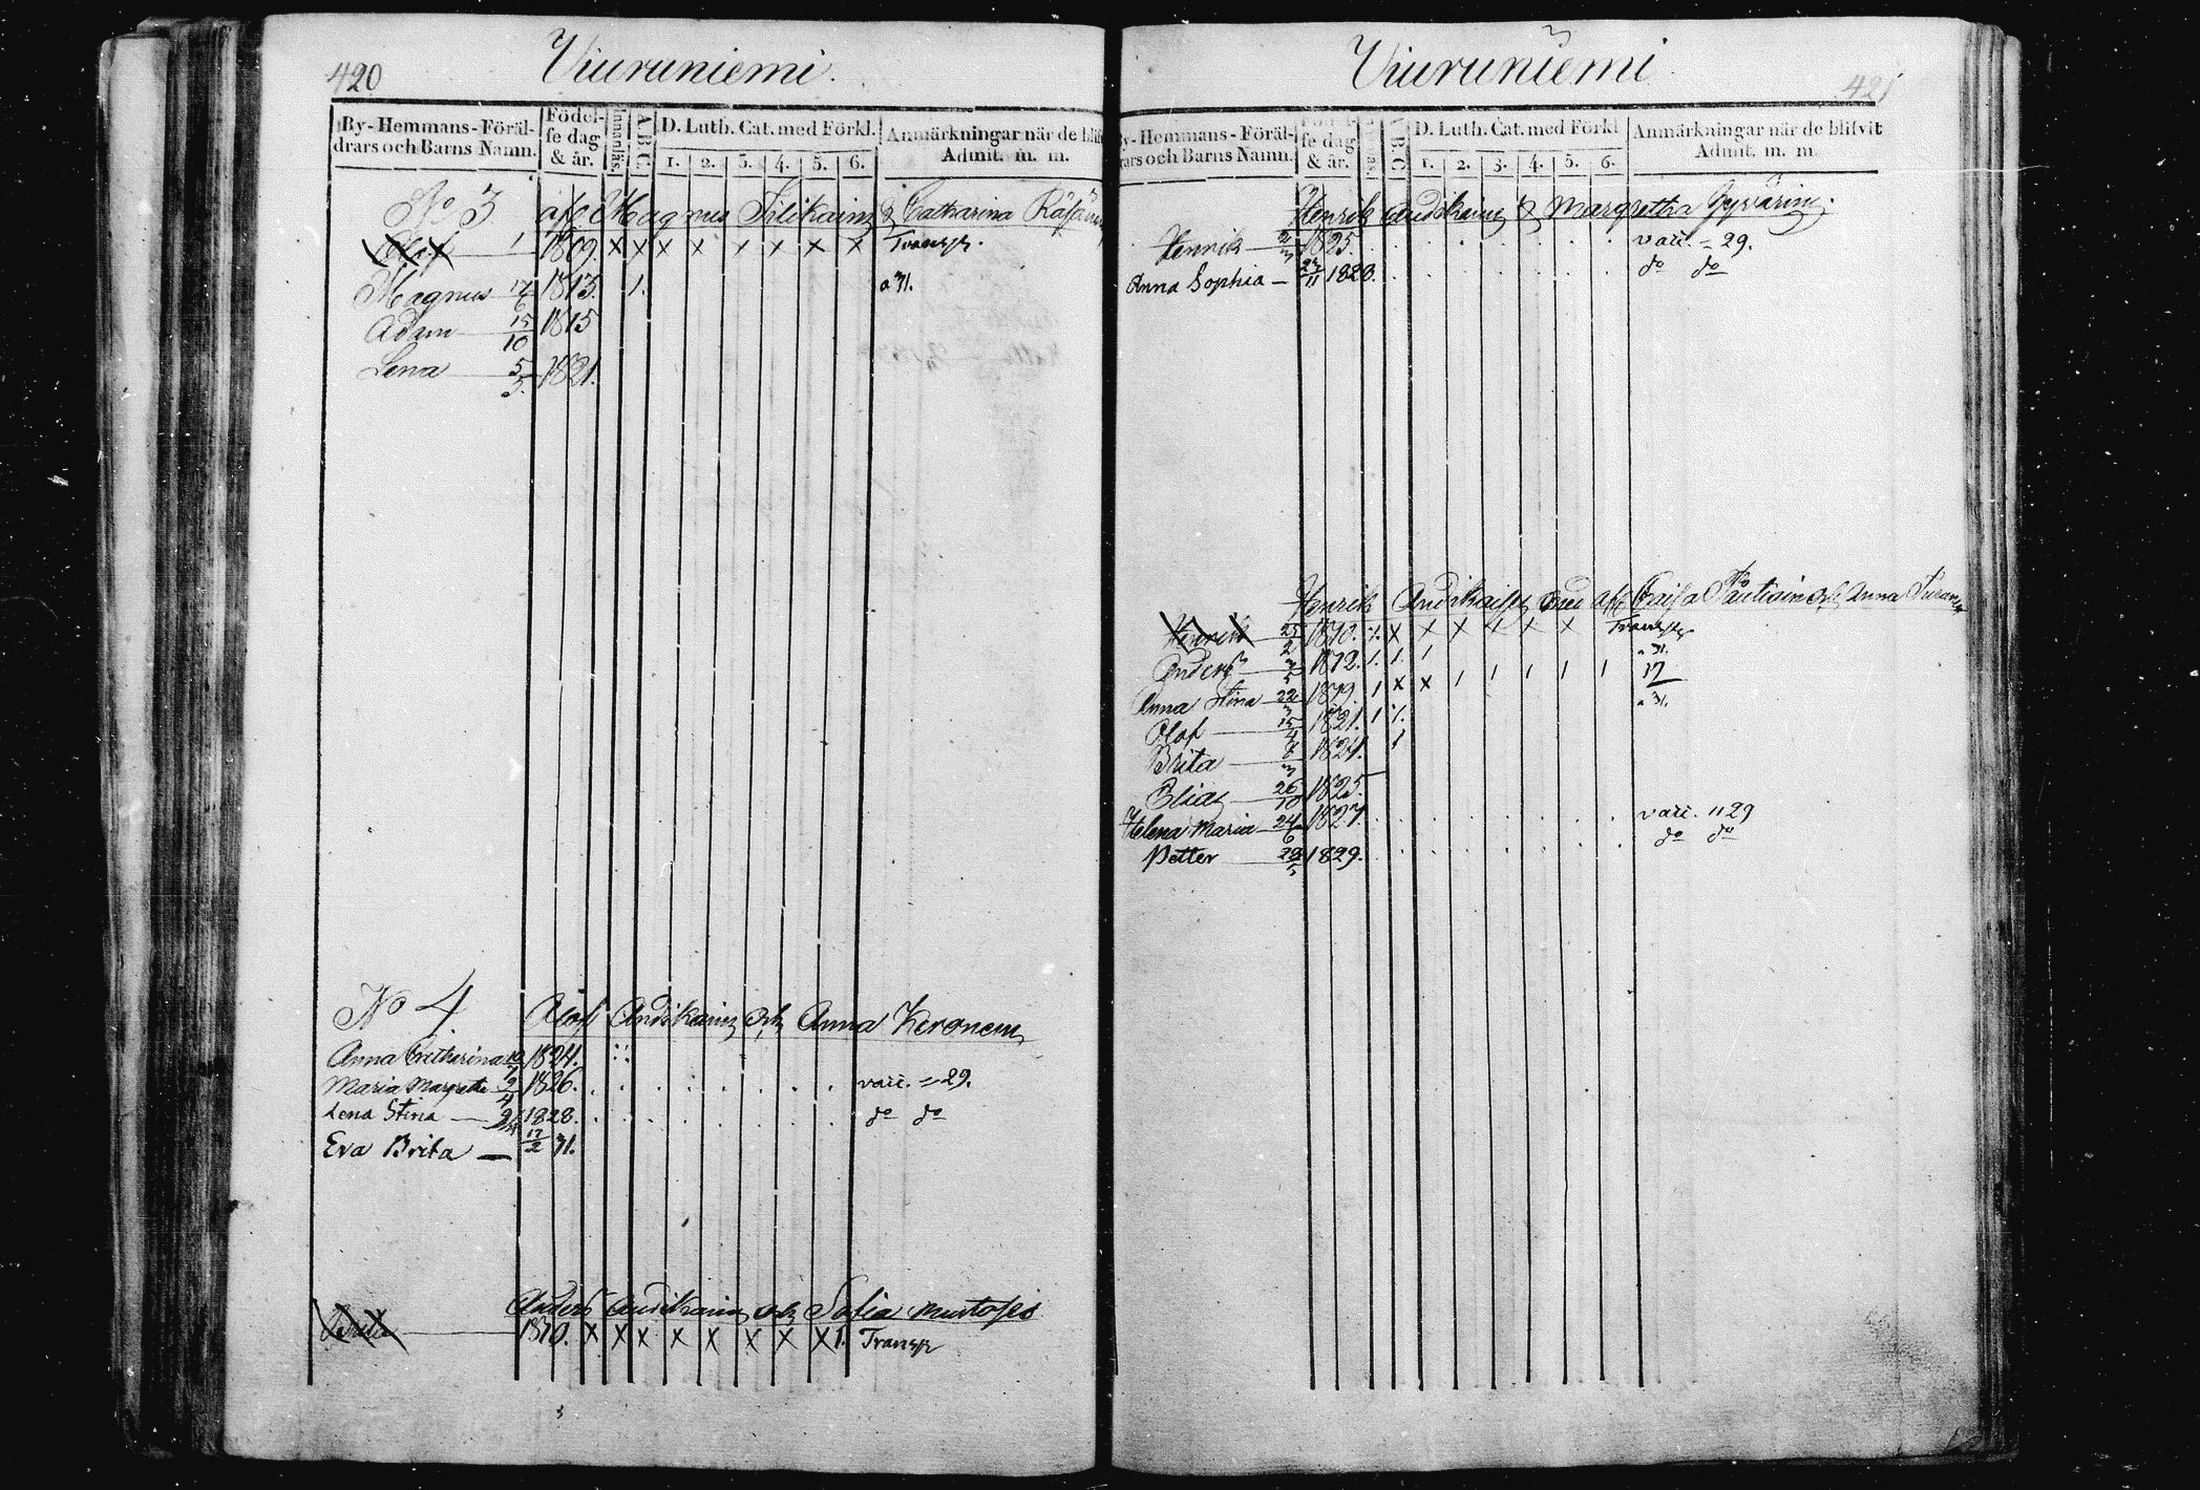 420
Viuruniemi.
By-Hemmans-Föräl-
drars och Barns Namn.
Födel-
se dag
& år.
Innanläs.
A.B.C.
D. Luth. Cat. med Förkl.
1. 2. 3. 4. 5. 6.
Anmärkningar när de blifvit
Admit. m. m.
No 3 afl Magnus & Catharina
Olof 1 1809. x x x x x x x x Transp.
Magnus 1813. 1. a 31.
Adam 15/10 1815
Lena 5/3 1821.
No 4. Olof Andikain och Anna Keronen
Anna Catharina 1824.
Maria Margretha 2/4 1826. . . . . . . . . vacc. = 29.
Lena Stina 1828. . . . . . . . . do do
Eva Brita 17/2 31.
Anders Andikain och Sofia
1810. x x x x x x x x 1. Transp
Viuruniemi
421
By-Hemmans-Föräl-
drars och Barns Namn.
se dag
& år.
A.B.C.
D. Luth. Cat. med Förkl
1. 2. 3. 4. 5. 6.
Anmärkningar när de blifvit
Admit. m. m.
Henrik Andikain & Margretha
Henrik 2/3 1825. . . . . . . . . vacc. = 29.
Anna Sophia 1828. . . . . . . . do do
Henrik och afl Caisa och Anna
Henrik 25/2 1810. x x x x x x Transp
Anders 1812. 1. 1. 1 a 31.
Anna Stina 22/3 1819. 1 x x 1 1 1 1 1 17
Olof 15/4 1821. 1 a 31.
Brita 1824. 1
Elias 26/10 1825.
Helena Maria 24/6 1827. . . . . . . . vacc. " 29
Petter 1829. . . . . . . . do do